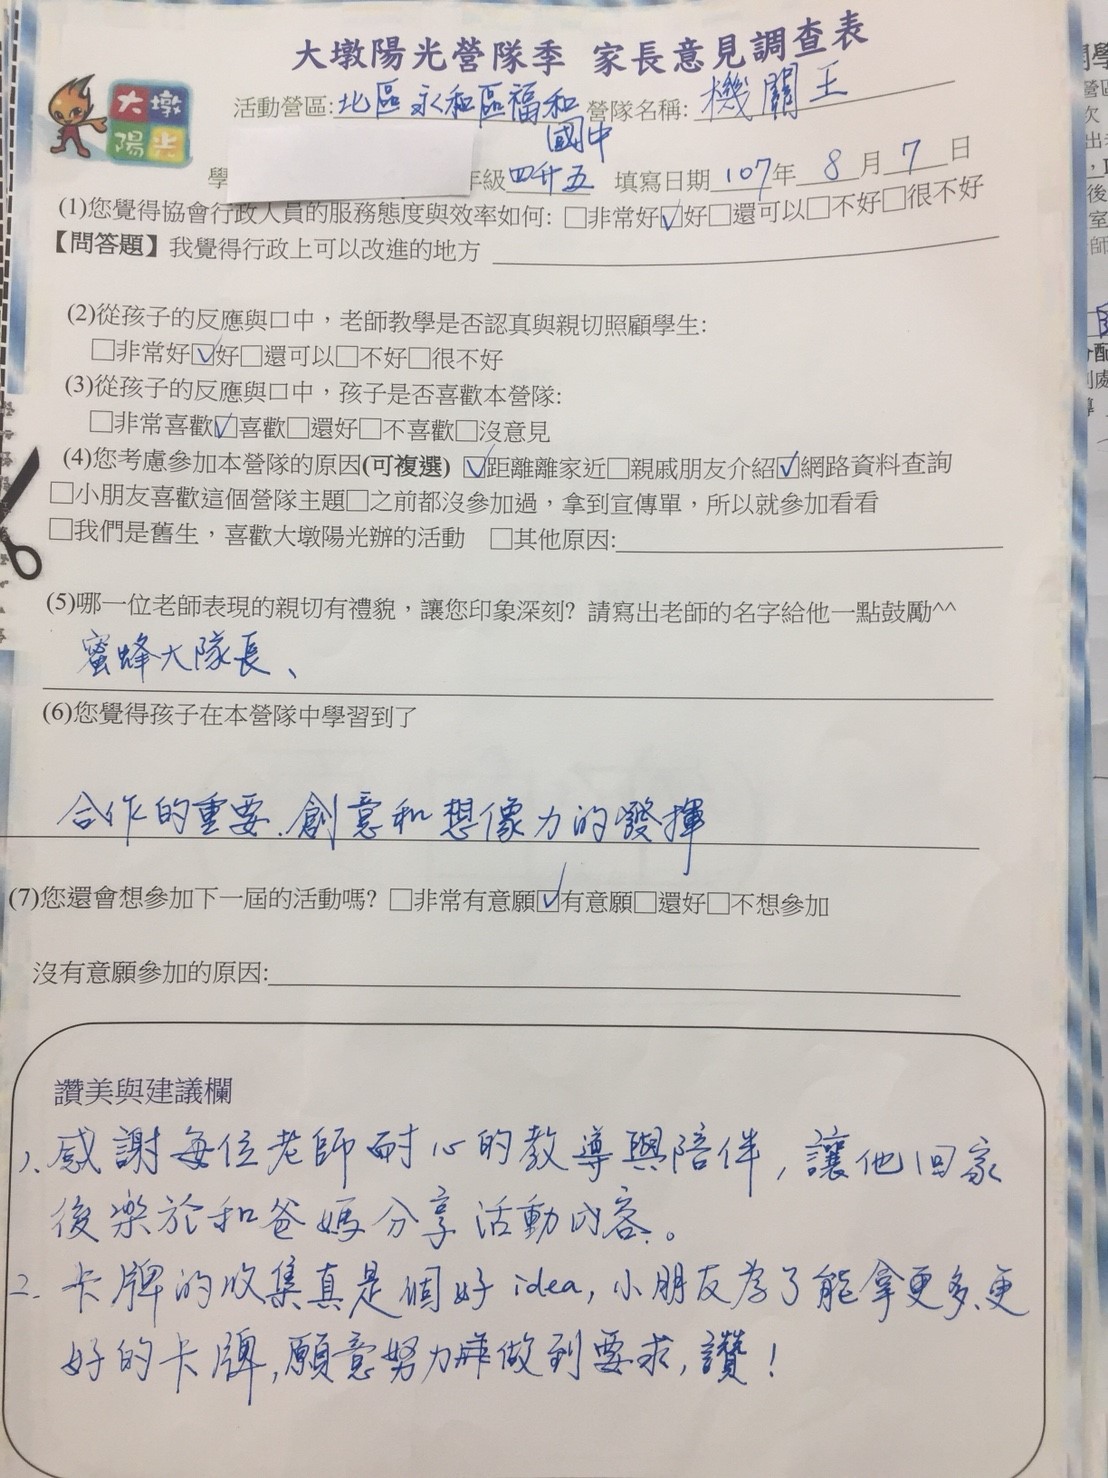 大墩陽光營隊季 家長意見調查表
大墩
陽光
活動營區:北區永和區福和國中 營隊名稱: 機關王
學 年級四升五 填寫日期107年8月7日
(1)您覺得協會行政人員的服務態度與效率如何: □非常好☑好□還可以□不好□很不好
【問答題】我覺得行政上可以改進的地方
(2)從孩子的反應與口中，老師教學是否認真與親切照顧學生:
□非常好☑好□還可以□不好□很不好
(3)從孩子的反應與口中，孩子是否喜歡本營隊:
□非常喜歡☑喜歡□還好□不喜歡□沒意見
(4)您考慮參加本營隊的原因(可複選) ☑距離離家近□親戚朋友介紹☑網路資料查詢
□小朋友喜歡這個營隊主題□之前都沒參加過，拿到宣傳單，所以就參加看看
□我們是舊生，喜歡大墩陽光辦的活動 □其他原因:
(5)哪一位老師表現的親切有禮貌，讓您印象深刻? 請寫出老師的名字給他一點鼓勵^^
蜜蜂大隊長、
(6)您覺得孩子在本營隊中學習到了
合作的重要、創意和想像力的發揮
(7)您還會想參加下一屆的活動嗎? □非常有意願☑有意願□還好□不想參加
沒有意願參加的原因:
讚美與建議欄
1. 感謝每位老師耐心的教導與陪伴，讓他回家
後樂於和爸媽分享活動內容。
2. 卡牌的收集真是個好idea, 小朋友為了能拿更多、更
好的卡牌,願意努力做到要求,讚！